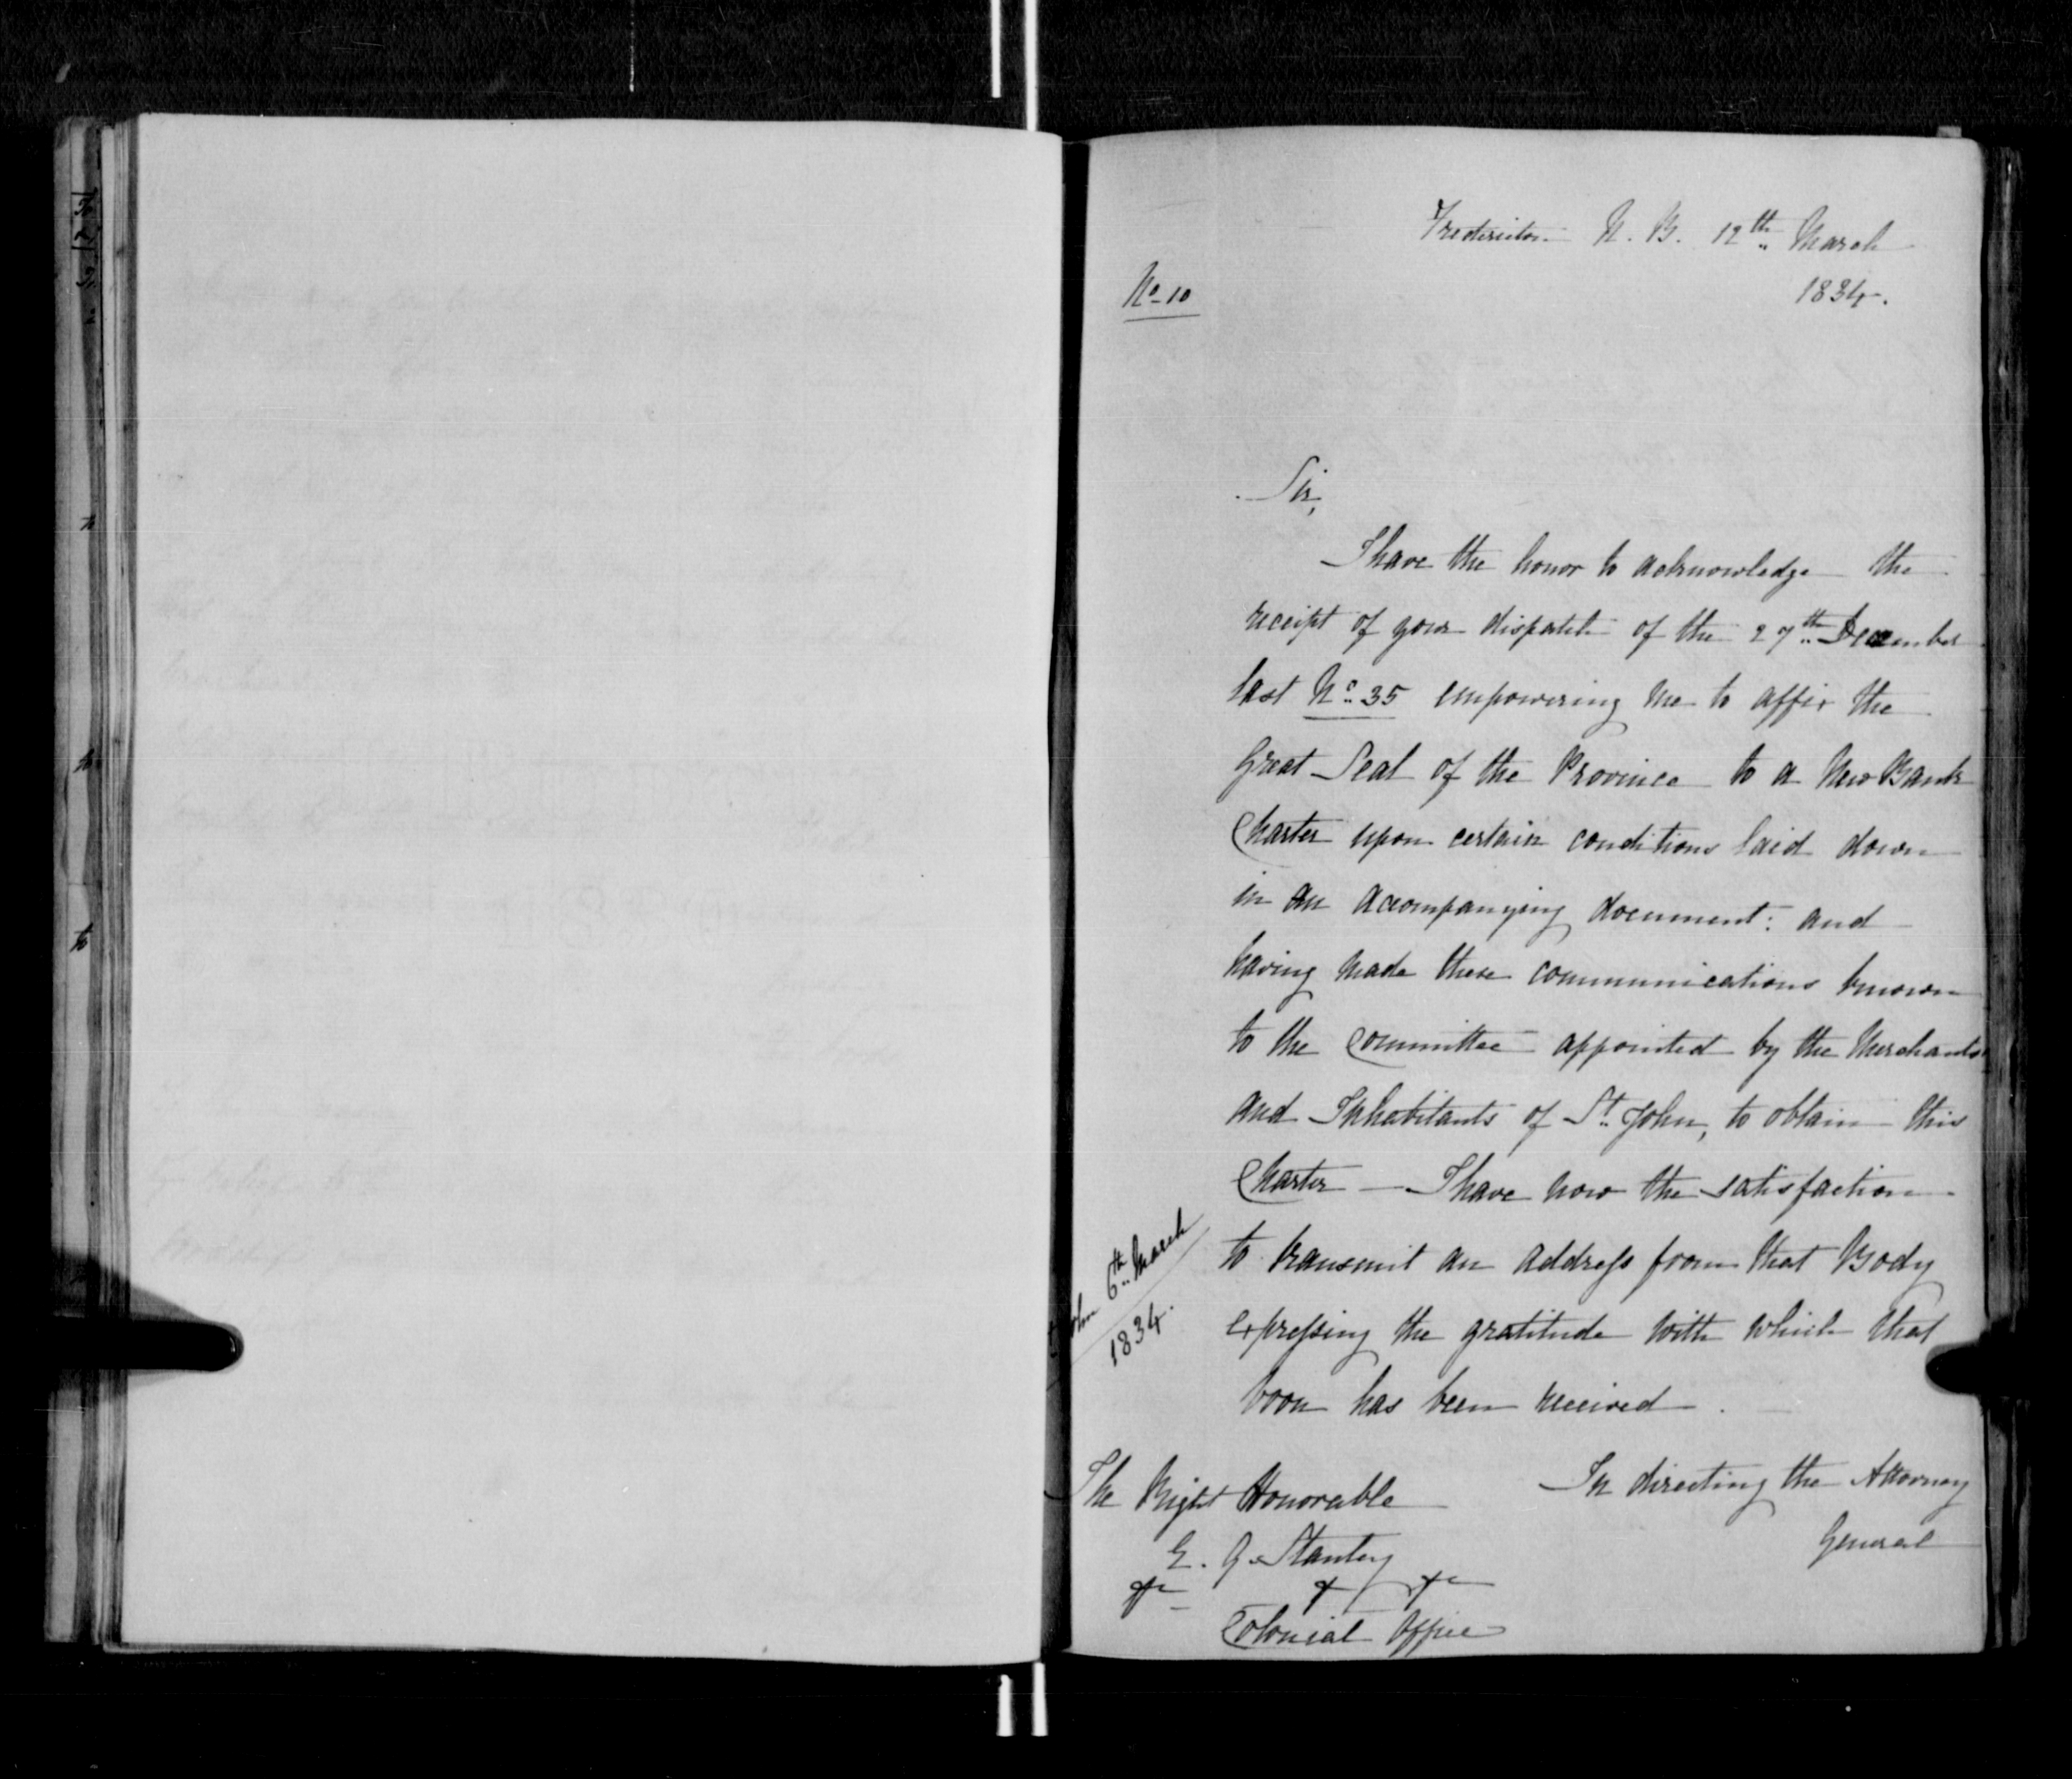 Fredericton N. B. 12th March
1834.
No 10
Sir,
I have the honor to acknowledge the
receipt of your dispatch of the 27th December
last No 35 empowering me to affix the
Great Seal of the Province to a New Bank
Charter upon certain conditions laid down
in an accompanying document: and
having made these communications known
to the Committee appointed by the Merchants
and Inhabitants of St. John, to obtain this
Charter — I have now the satisfaction
to transmit an Address from that Body
expressing the gratitude with which that
boon has been received.
6th March
1834.
In directing the Attorney
General
The Right Honorable
E. G. Stanley
&c & &c
Colonial Office